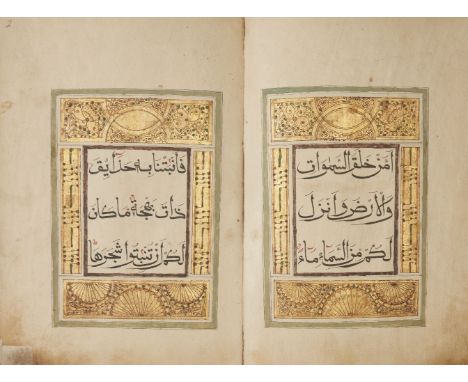 امن خلق السموات
والارض وانزل
لكم من السماء ماء
فانبتنا به حدايق
ذات بهجة ما كان
لكم ان تنبتوا شجرها